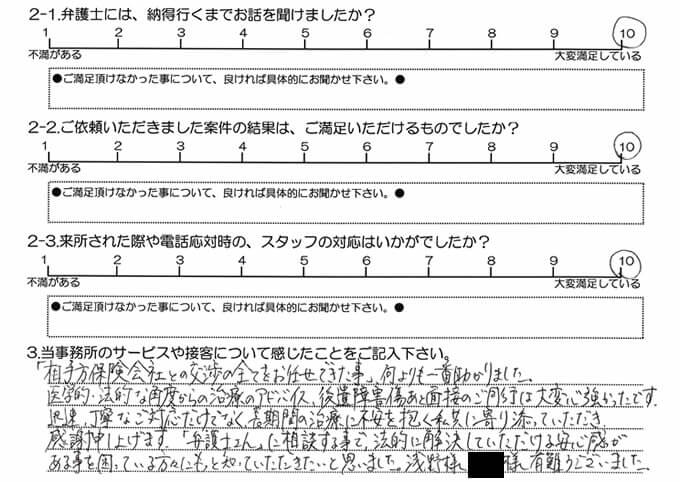 2-1.弁護士には、納得行くまでお話を聞けましたか？
1 2 3 4 5 6 7 8 9 10
不満がある 大変満足している
●ご満足頂けなかった事について、良ければ具体的にお聞かせ下さい。●
2-2.ご依頼いただきました案件の結果は、ご満足いただけるものでしたか？
1 2 3 4 5 6 7 8 9 10
不満がある 大変満足している
●ご満足頂けなかった事について、良ければ具体的にお聞かせ下さい。●
2-3.来所された際や電話応対時の、スタッフの対応はいかがでしたか？
1 2 3 4 5 6 7 8 9 10
不満がある 大変満足している
●ご満足頂けなかった事について、良ければ具体的にお聞かせ下さい。●
3.当事務所のサービスや接客について感じたことをご記入下さい。
「相手方保険会社との交渉の全てをお任せできた事」何よりも一番助かりました。
医学的・法的な角度からの治療のアドバイス、後遺障害傷あと面接のご同行は大変心強かったです。
迅速、丁寧なご対応だけでなく、長期間の治療に不安を抱く私共に寄り添っていただき
感謝申し上げます。「弁護士さん」に相談する事で、法的に解決していただける安心感が
ある事を困っている方々にもっと知っていただきたいと思いました。浅野様、 様、有難うございました。